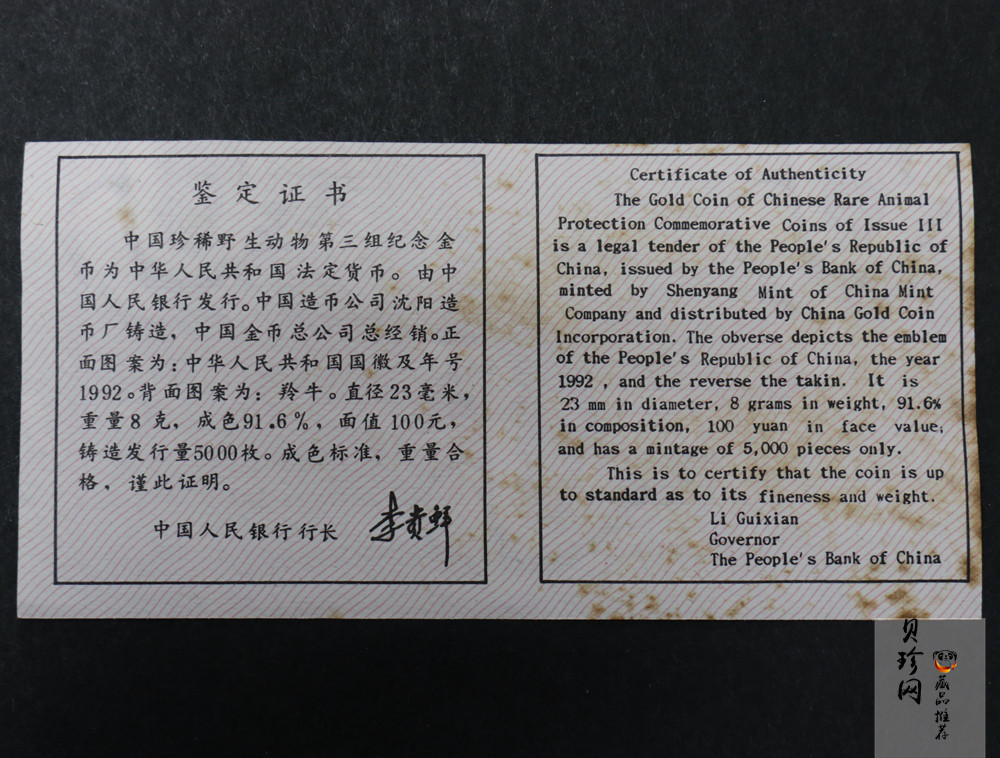 鉴定证书
中国珍稀野生动物第三组纪念金
币为中华人民共和国法定货币。由中
国人民银行发行。中国造币公司沈阳造
币厂铸造，中国金币总公司总经销。正
面图案为：中华人民共和国国徽及年号
1992。背面图案为：羚牛。直径23毫米，
重量8克，成色91.6%，面值100元，
铸造发行量5000枚。成色标准，重量合
格，谨此证明。
中国人民银行行长 李贵鲜
Certificate of Authenticity
The Gold Coin of Chinese Rare Animal
Protection Commemorative Coins of Issue III
is a legal tender of the People's Republic of
China, issued by the People's Bank of China,
minted by Shenyang Mint of China Mint
Company and distributed by China Gold Coin
Incorporation. The obverse depicts the emblem
of the People's Republic of China, the year
1992 , and the reverse the takin. It is
23 mm in diameter, 8 grams in weight, 91.6%
in composition, 100 yuan in face value,
and has a mintage of 5,000 pieces only.
This is to certify that the coin is up
to standard as to its fineness and weight.
Li Guixian
Governor
The People's Bank of China
贝珍网
藏品推荐